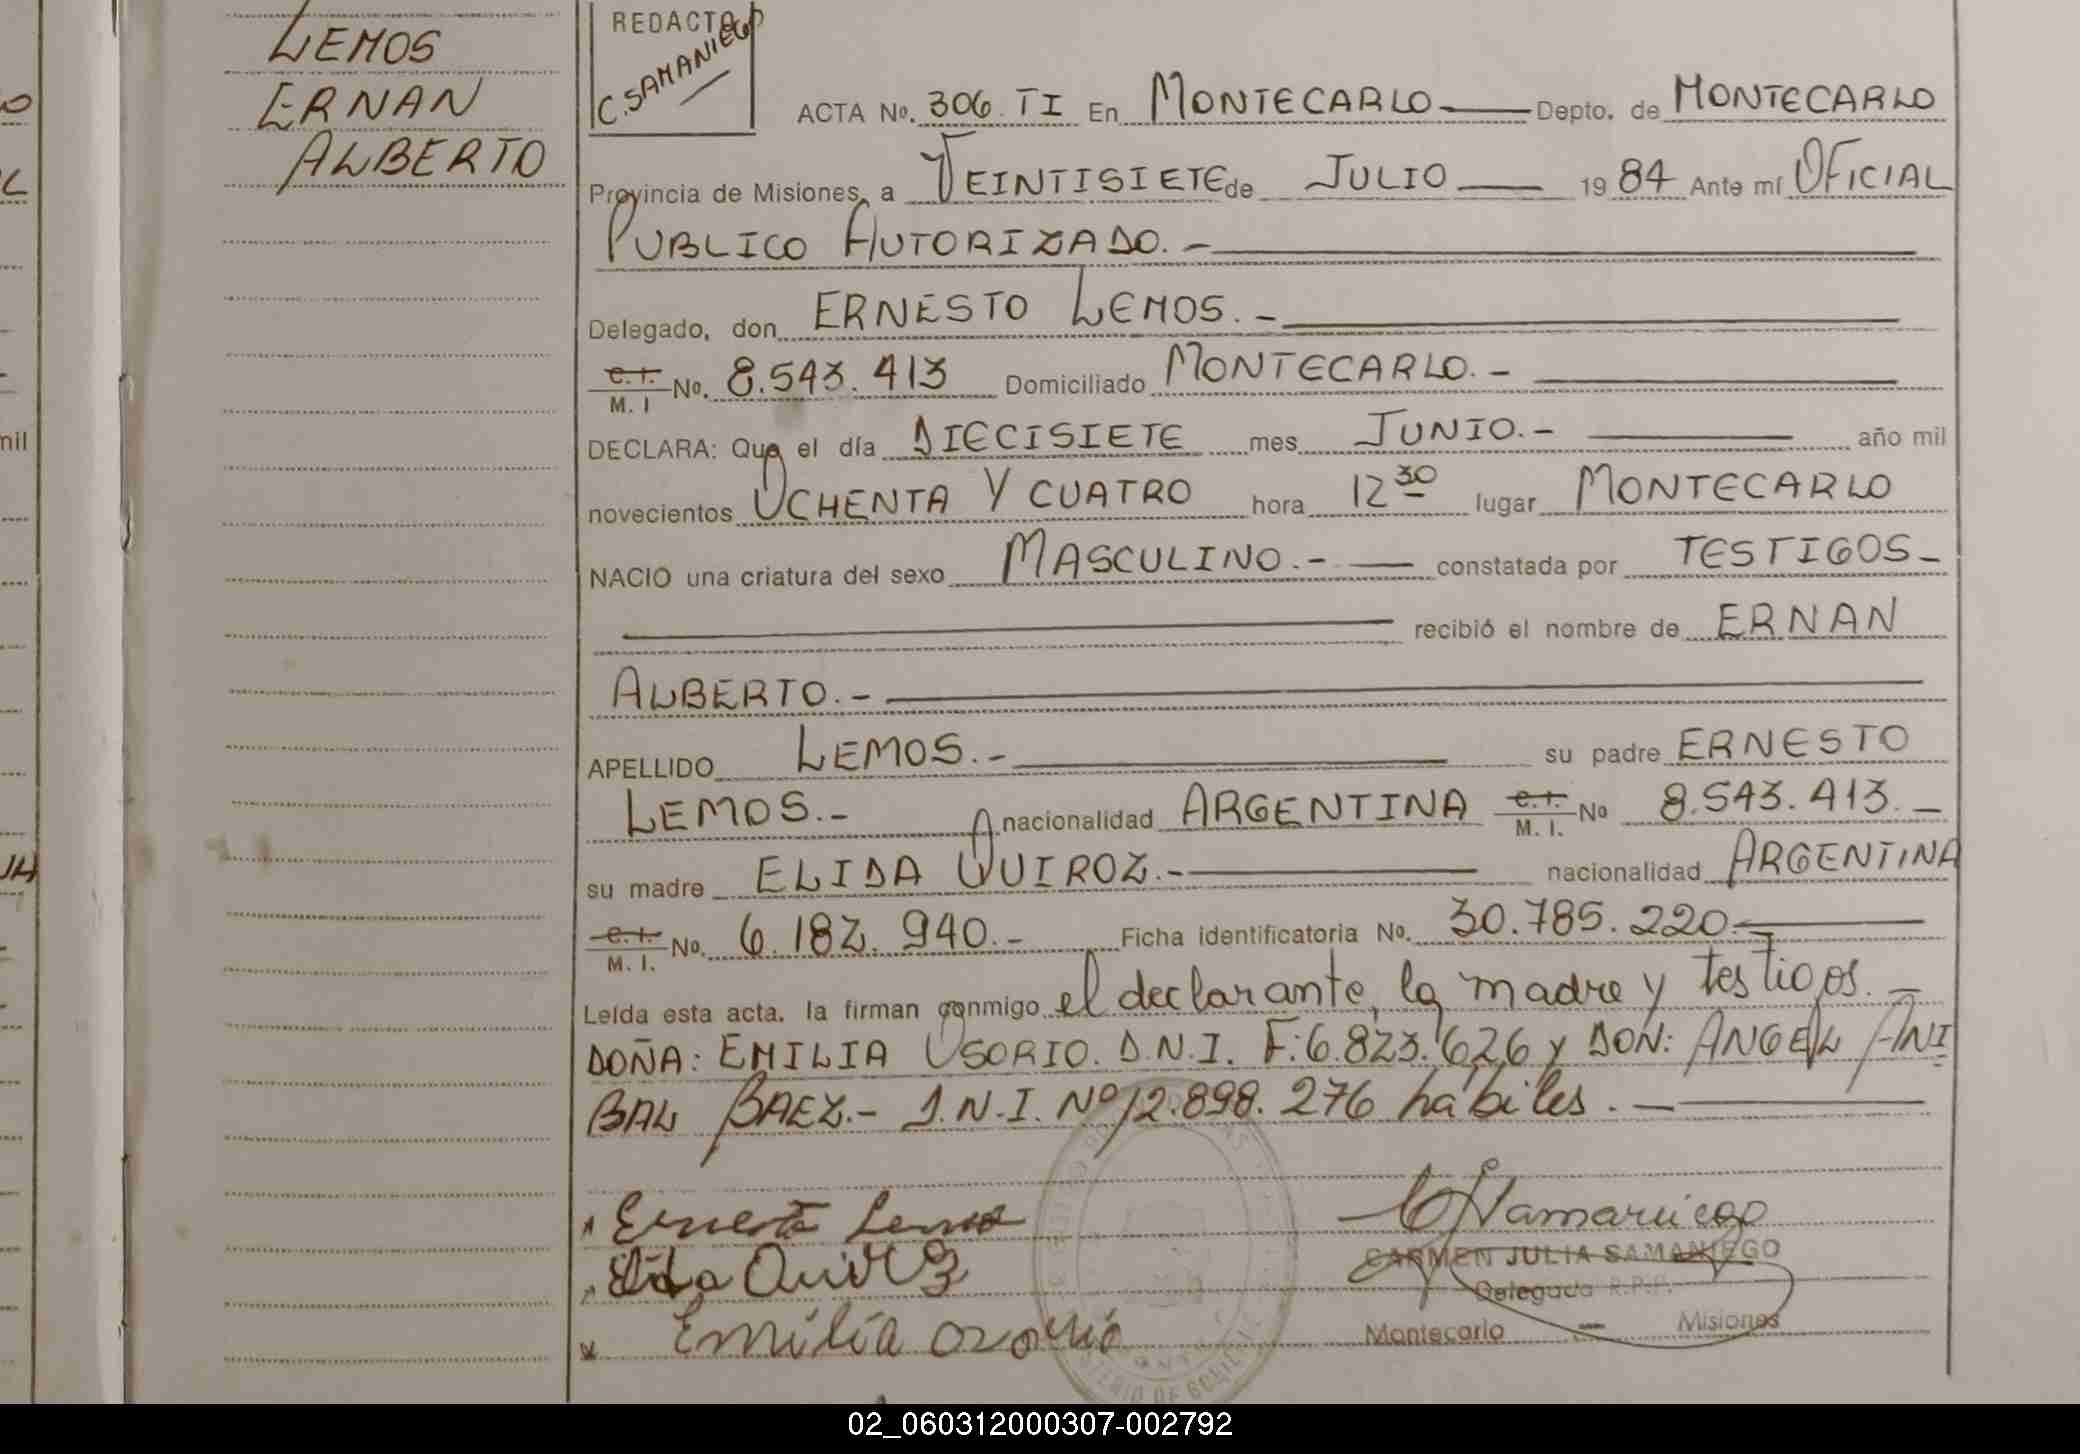 LEMOS
ERNAN
ALBERTO
REDACTO
C. SAMANIEGO
ACTA No. 306 TI En MONTECARLO Depto. de MONTECARLO
Provincia de Misiones, a VEINTISIETE de JULIO 19 84 Ante mí OFICIAL
PUBLICO AUTORIZADO.-
Delegado, don ERNESTO LEMOS.-
C.I. M. I No. 8.543.413 Domiciliado MONTECARLO.-
DECLARA: Que el día DIECISIETE mes JUNIO.- año mil
novecientos OCHENTA Y CUATRO hora 12 30 lugar MONTECARLO
NACIO una criatura del sexo MASCULINO.- constatada por TESTIGOS-
recibió el nombre de ERNAN
ALBERTO.-
APELLIDO LEMOS.- su padre ERNESTO
LEMOS.- nacionalidad ARGENTINA C.I. M. I. No 8.543.413.-
su madre ELIDA QUIROZ.- nacionalidad ARGENTINA
C.I. M. I. No. 6.182.940.- Ficha identificatoria No. 30.785.220.-
Leída esta acta, la firman conmigo el declarante, la madre y testigos.-
DOÑA: EMILIA OSORIO. D.N.I. F: 6.823.626 y DON: ANGEL ANI
BAL BAEZ.- D.N.I. Nº 12.898.276 hábiles.-
Ernesto Lemos
Elida Quiroz
Emilia Osorio
C J Samaniego
CARMEN JULIA SAMANIEGO
Delegada R.P.P.
Montecarlo - Misiones
02_060312000307-002792